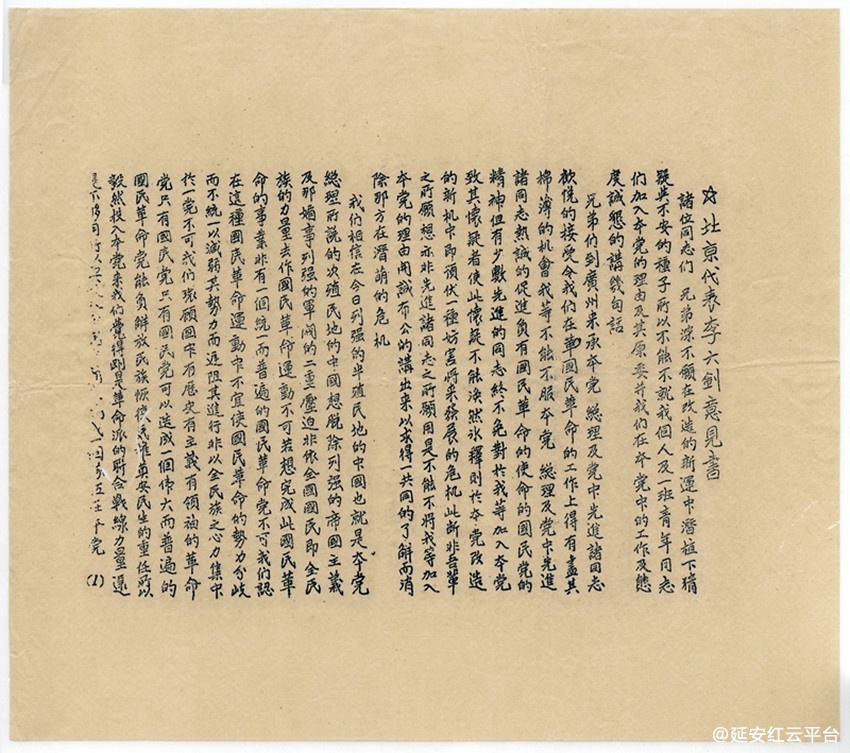 ☆北京代表李大釗意見書
諸位同志們　兄弟深不願在改造的新運中潜植下猜
疑與不安的種子所以不能不就我個人及一班青年同志
們加入本党的理由及其原委并我們在本党中的工作及態
度誠懇的講幾句話
兄弟們到廣州来承本党　總理及党中先進諸同志
歡悦的接受令我們在國民革命的工作上得有盡其
棉薄的機會我等不能不服本党　總理及党中先進
諸同志熱誠的促進負有國民革命的使命的國民党的
精神但有少數先進的同志終不免對於我等加入本党
致其懷疑者使此懷疑不能渙然氷釋則於本党改造
的新机中即預伏一種妨害將来發展的危机此斷非吾輩
之所願想亦非先進諸同志之所願用是不能不將我等加入
本党的理由開誠布公的講出来以求得一共同的了解而消
除那方在潛萌的危机
我們相信在今日列強的半殖民地的中國也就是本党
總理所説的次殖民地的中國想脱除列強的帝國主義
及那媚事列強的軍阀的二重壓迫非依全國國民即全民
族的力量去作國民革命運動不可若想完成此國民革
命的事業非有一個統一而普遍的國民革命党不可我們認
在這種國民革命運動中不宜使國民革命的勢力分歧
而不統一以減弱其勢力而遲阻其進行非以全民族之心力集中
於一党不可我們環顧國中有歷史有主義有領袖的革命
党只有國民党只有國民党可以造成一個偉大而普遍的
國民革命党能負解放民族恢復民權奠安民生的重任所以
毅然投入本党来我們覺得剛是革命派的聯合戰線力量還
本党
(1)
@延安红云平台